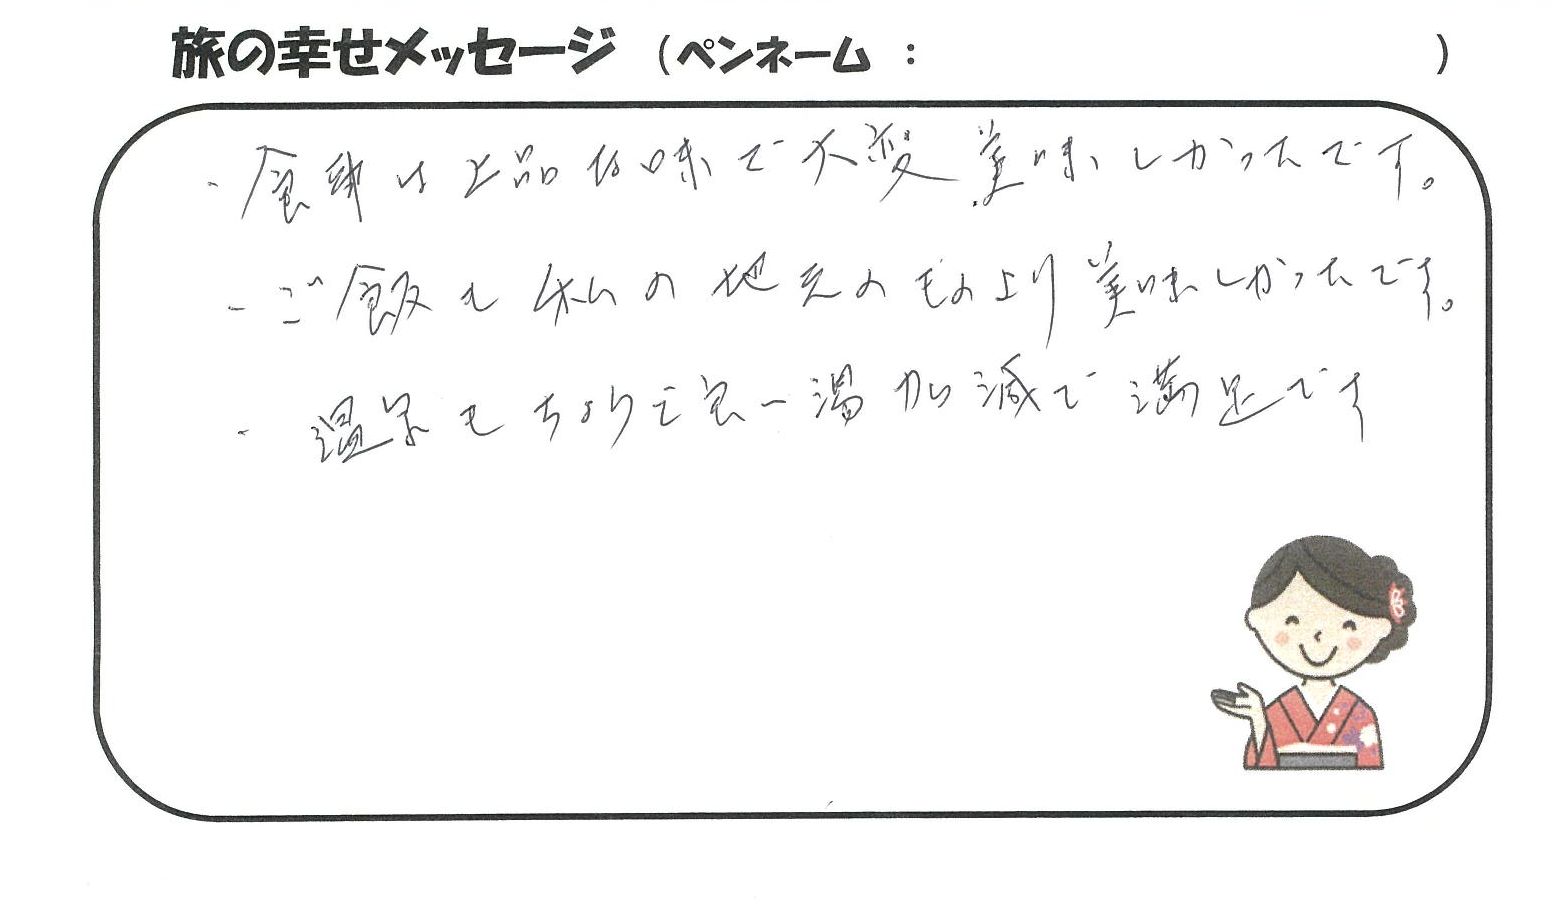 旅の幸せメッセージ （ペンネーム ： ）
・食事は上品な味で大変美味しかったです。
・ご飯も私の地元のものより美味しかったです。
・温泉もちょうど良い湯加減で満足です